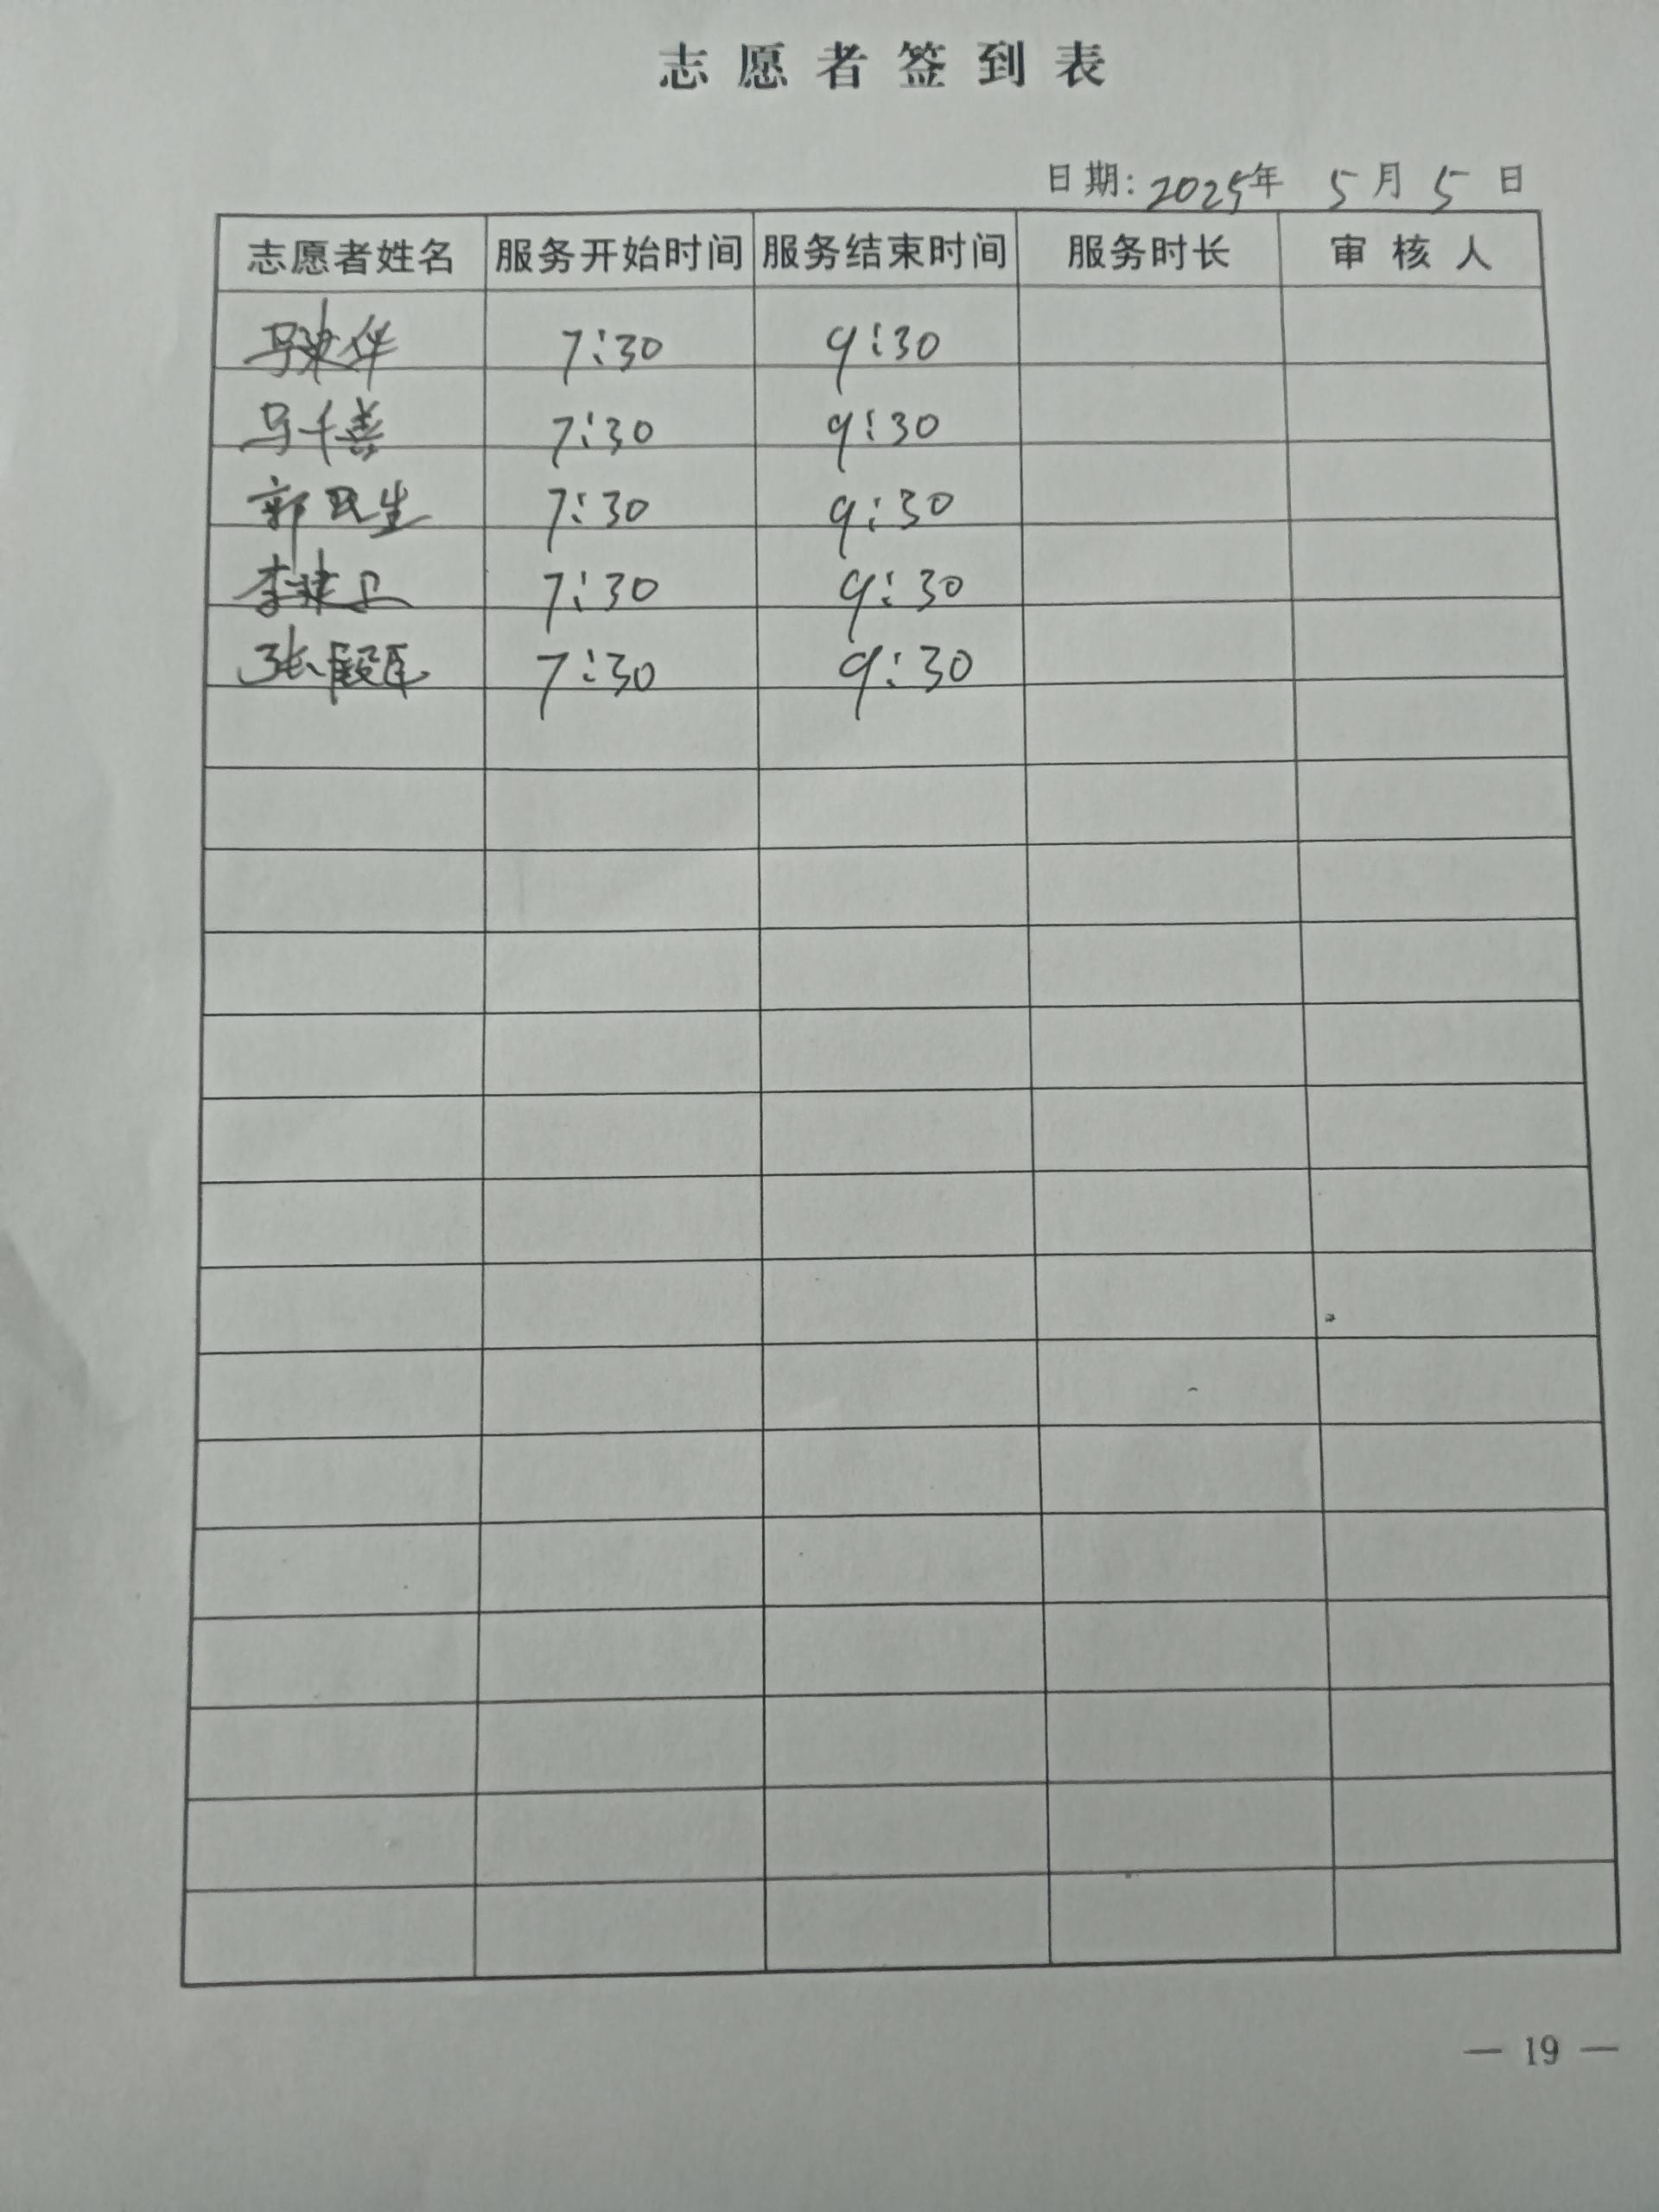 志愿者签到表
日期: 2025年 5月 5日
志愿者姓名 服务开始时间 服务结束时间 服务时长 审核人
马建伟 7:30 9:30
马千善 7:30 9:30
郭民生 7:30 9:30
李建卫 7:30 9:30
张 7:30 9:30
— 19 —